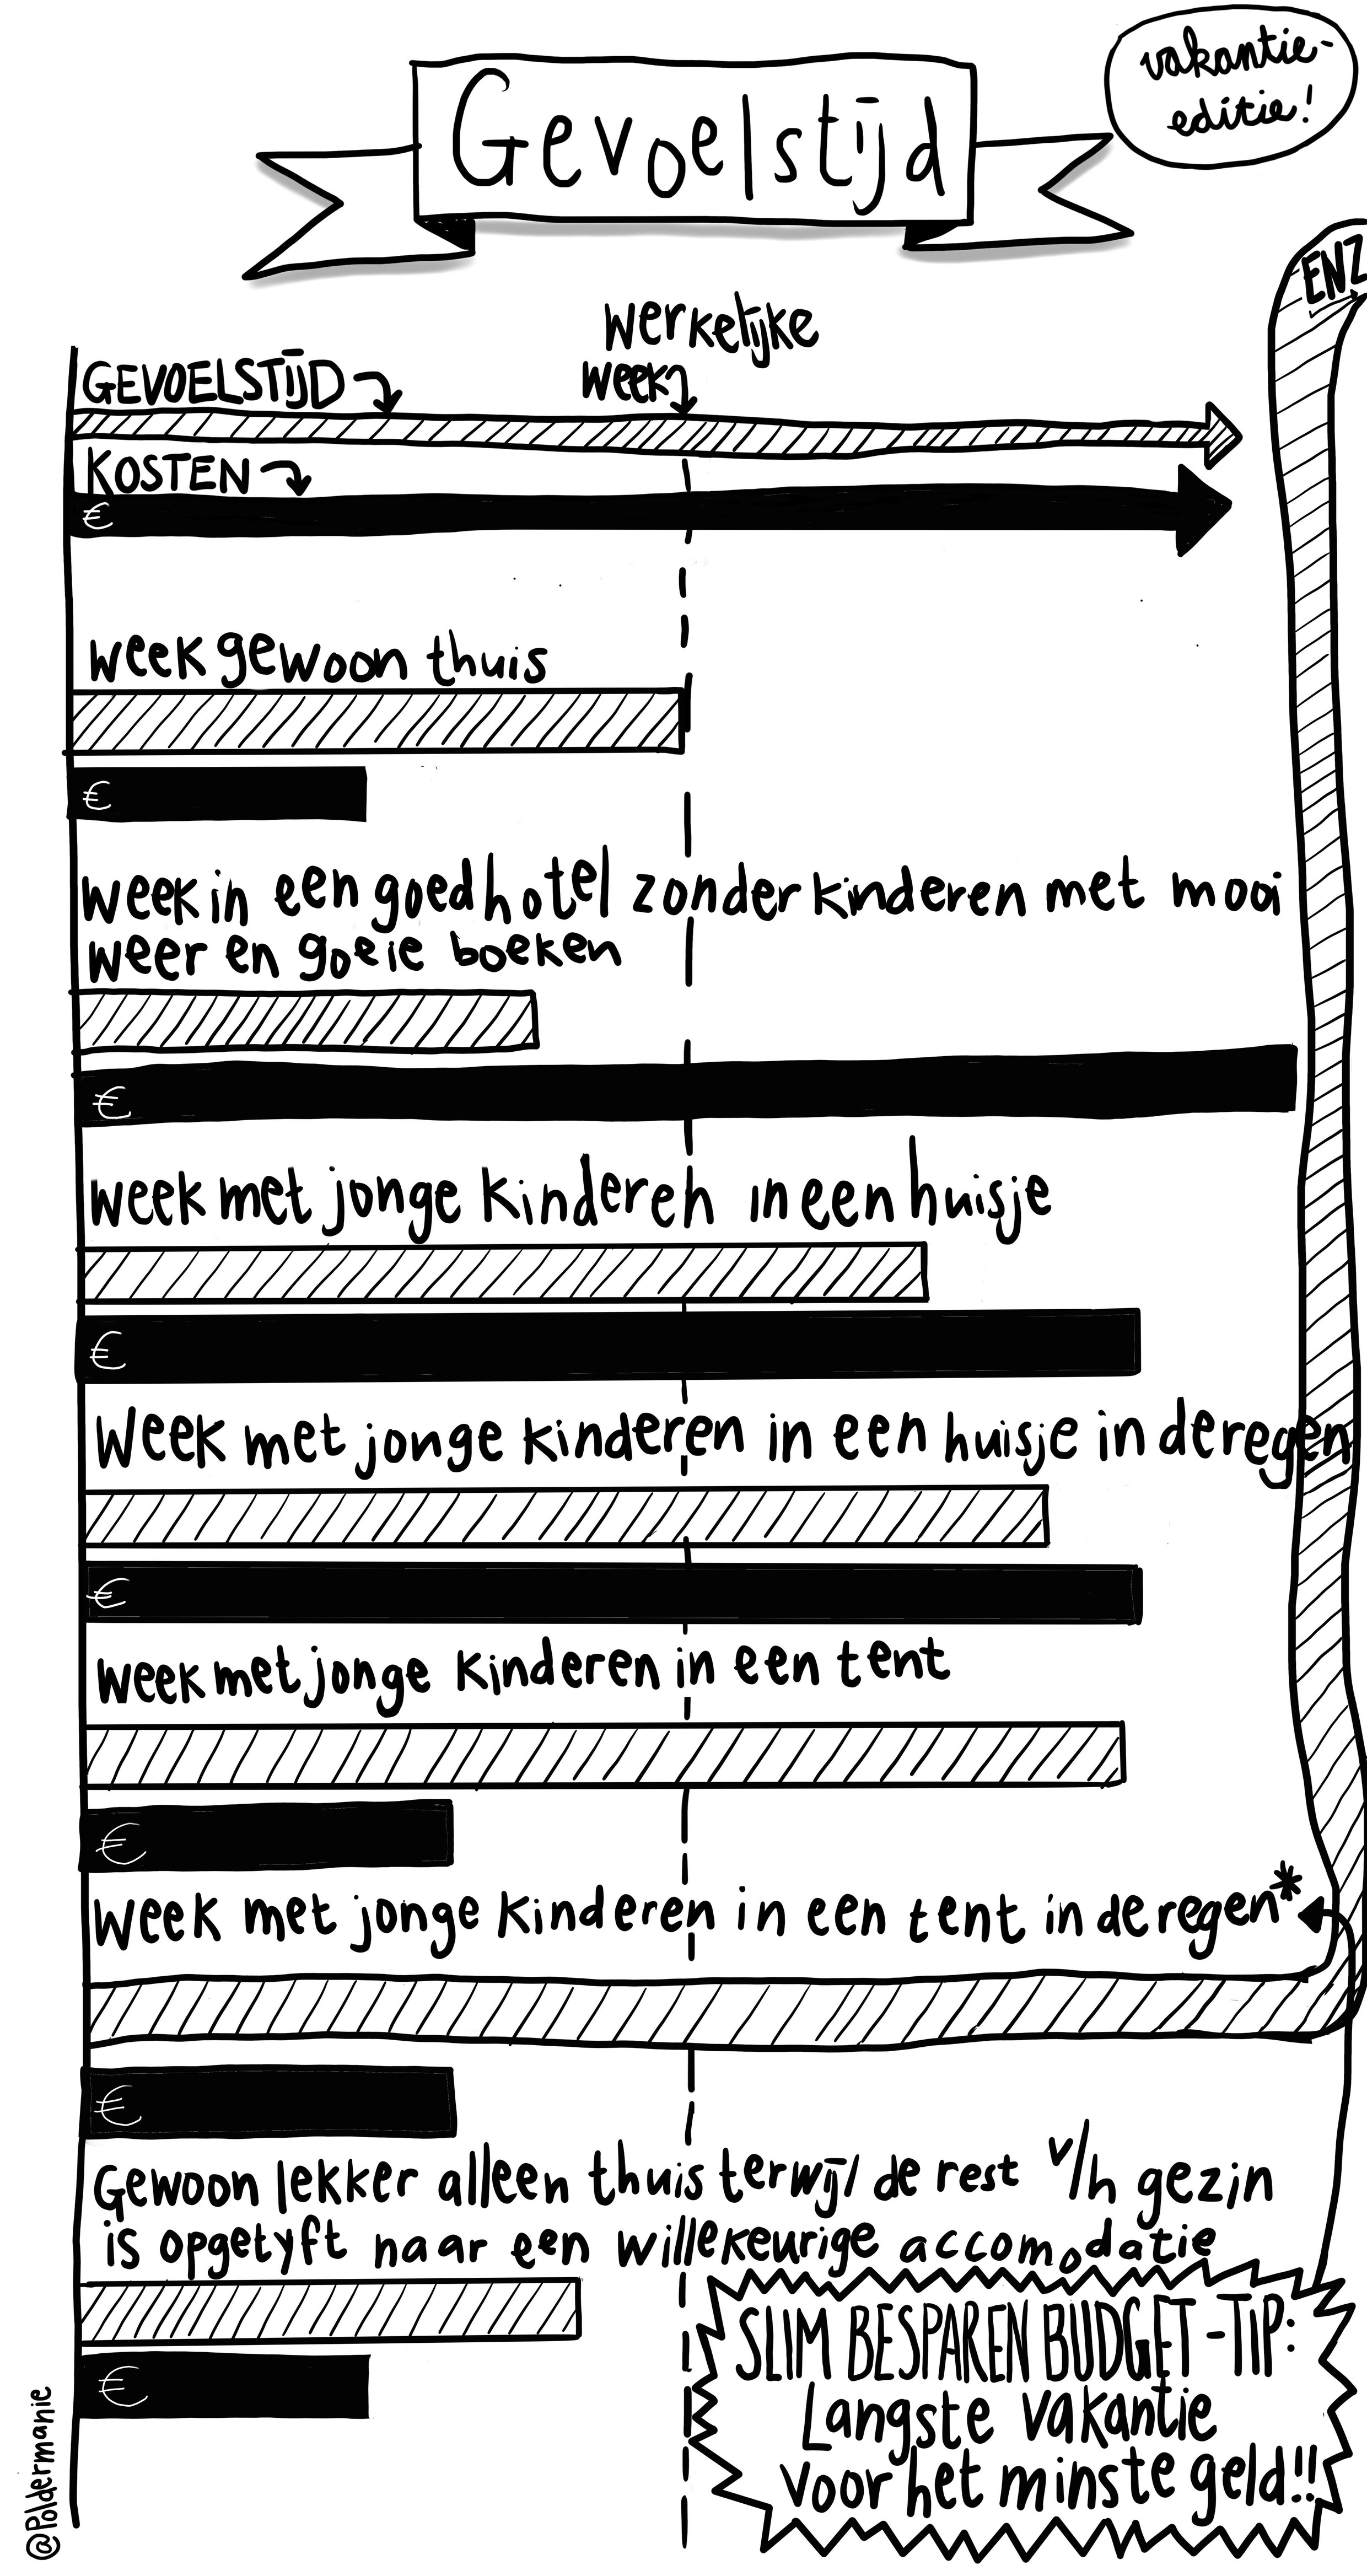 Gevoelstijd
vakantie-
editie!
ENZ
Werkelijke
week
GEVOELSTIJD
KOSTEN
€
week gewoon thuis
€
week in een goed hotel zonder kinderen met mooi
weer en goeie boeken
€
week met jonge kinderen in een huisje
€
Week met jonge kinderen in een huisje in de regen
€
week met jonge kinderen in een tent
€
Week met jonge kinderen in een tent in de regen*
€
Gewoon lekker alleen thuis terwijl de rest v/h gezin
is opgetyft naar een willekeurige accomodatie
€
SLIM BESPAREN BUDGET-TIP:
Langste vakantie
voor het minste geld!!
@Poldermanie